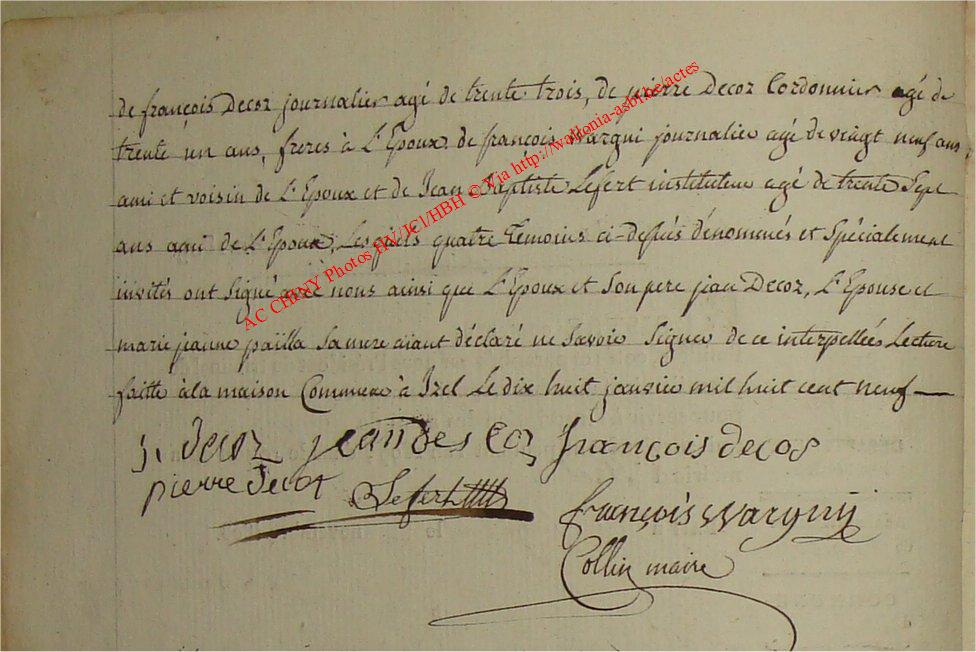 de françois Decoz journalier agé de trente trois, de pierre Decoz Cordonnier agé de
trente un ans, freres à L'Epoux, de françois Wargni journalier agé de vingt neuf ans
ami et voisin de L'Epoux et de Jean Baptiste Lefert instituteur agé de trente Sept
ans ami de L'Epoux, Lesquels quatre témoins ci-dessus dénommés et Spécialement
invités ont Signé avec nous ainsi que L'Epoux et Son pere jean Decoz, L'Epouse et
marie jeanne païlla Sa mere aïant déclaré ne Savoir Signer de ce interpellées Lecture
faitte à la maison Commune à Izel Le dix huit janvier mil huit cent neuf
AC CHINY Photos HV/JCl/HBH © Via http://wallonia-asbl.be/actes
j. decoz jean des coz françois decos
pierre decot Lefert
françois Wargnij
Collin maire